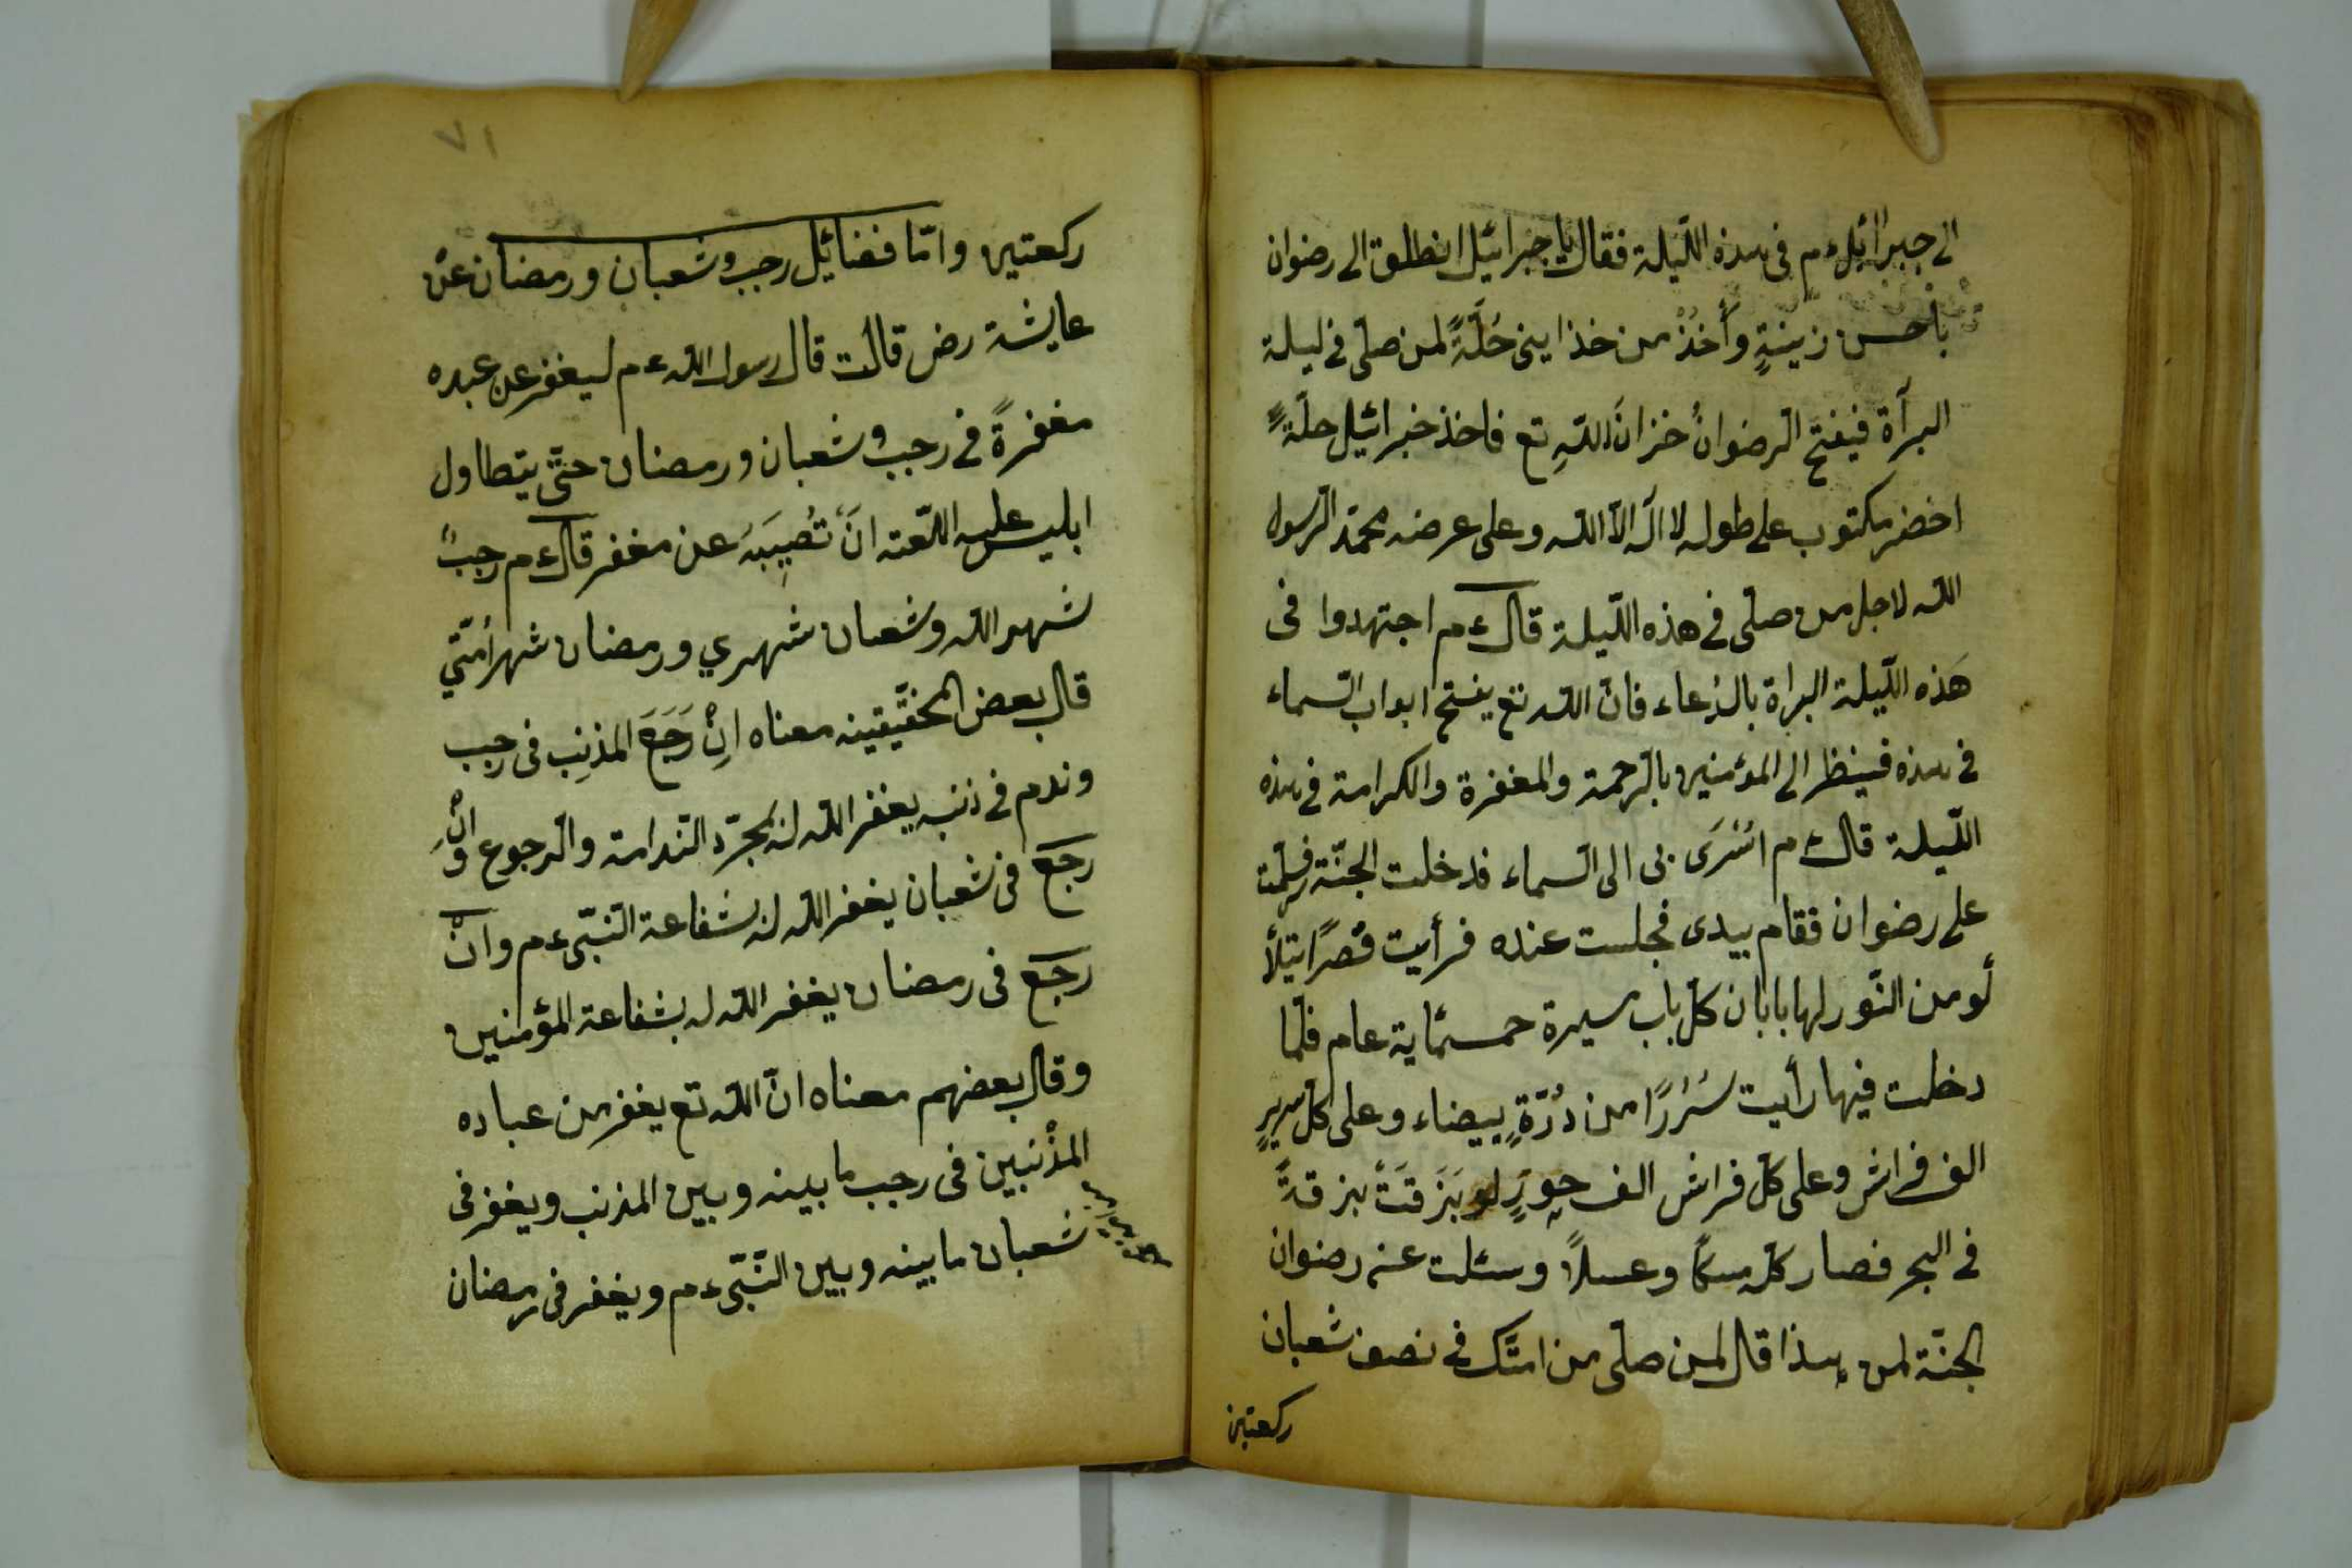 الى جبرائيل ءم فى هذه اللّيلة فقال يا جبرائيل انطلق الى رضوان
باحسن زينةٍ وأخذ من خذاينى حُلّةً لمن صلّى فى ليلة
البرآة فيفتح الرضوانُ خزانَ اللّهِ تع فاخذ خبرائيل حلّةً
اخضر مكتوب على طوله لا اله الا الله وعلى عرضه محمّد الرسول
الله لاجل من صلّى فى هذه اللّيلة قال ءم اجتهدوا فى
هَذه اللّيلة البراة بالدّعاء فانّ الله تع يفتح ابواب السّماء
فى هذه فينظر الى المؤمنين بالرّحمة والمغفرة والكرامة فى هذه
اللّيلة قال ءم اسْرَى بى الى السماء فدخلت الجنّة فسلّمت
على رضوان فقام بيدى فجلست عنده فرأيت قصرًا يتلأ
لؤ من النّور لها بابان كلّ باب مسيرة خمسمائة عام فلمّا
دخلت فيها رأيت سُرُرًا من دُرّةٍ بيضاء وعلى كلّ سريرٍ
الف فراش وعلى كلّ فراش الف حورٍ لو بَزَقَتْ بزقةً
فى البحر فصار كلّه مسكًا وعسلاً وسئلت عنه رضوان
الجنّة لمن هذا قال لمن صلّى من امتك فى نصف شعبان
ركعتين
٧١
ركعتين وامّا فضائيل رجب وشعبان ورمضان عن
عايشة رض قالت قال رسول الله ءم ليغفر عن عبده
مغفرةً فى رجب وشعبان ورمضان حتّى يتطاول
ابليس عليه اللّعنه انَْ تُصِيبَهُ عن مغفر قال ءم رجبٌ
شهر الله وشعبان شهري ورمضان شهر اُمّتي
قال بعض المحقّيقينه معناه اِنْ رَجَعَ المذنِب فى رجب
وندم فى ذنبه يغفر الله له بمجرّد النّدامة والرجوع وَانْ
رجَعَ فى شعبان يغفر الله له بشفاعة النّبّى ءم وانْ
رجَعَ فى رمضان يغفر الله له بشفاعة المؤمنين
وقال بعضهم معناه انّ الله تع يغفر من عباده
المذْنبين فى رجب ما بينه وبين المذنب ويغفر فى
شعبان ما بينه وبين النّبّى ءم ويغفر فى رمضان